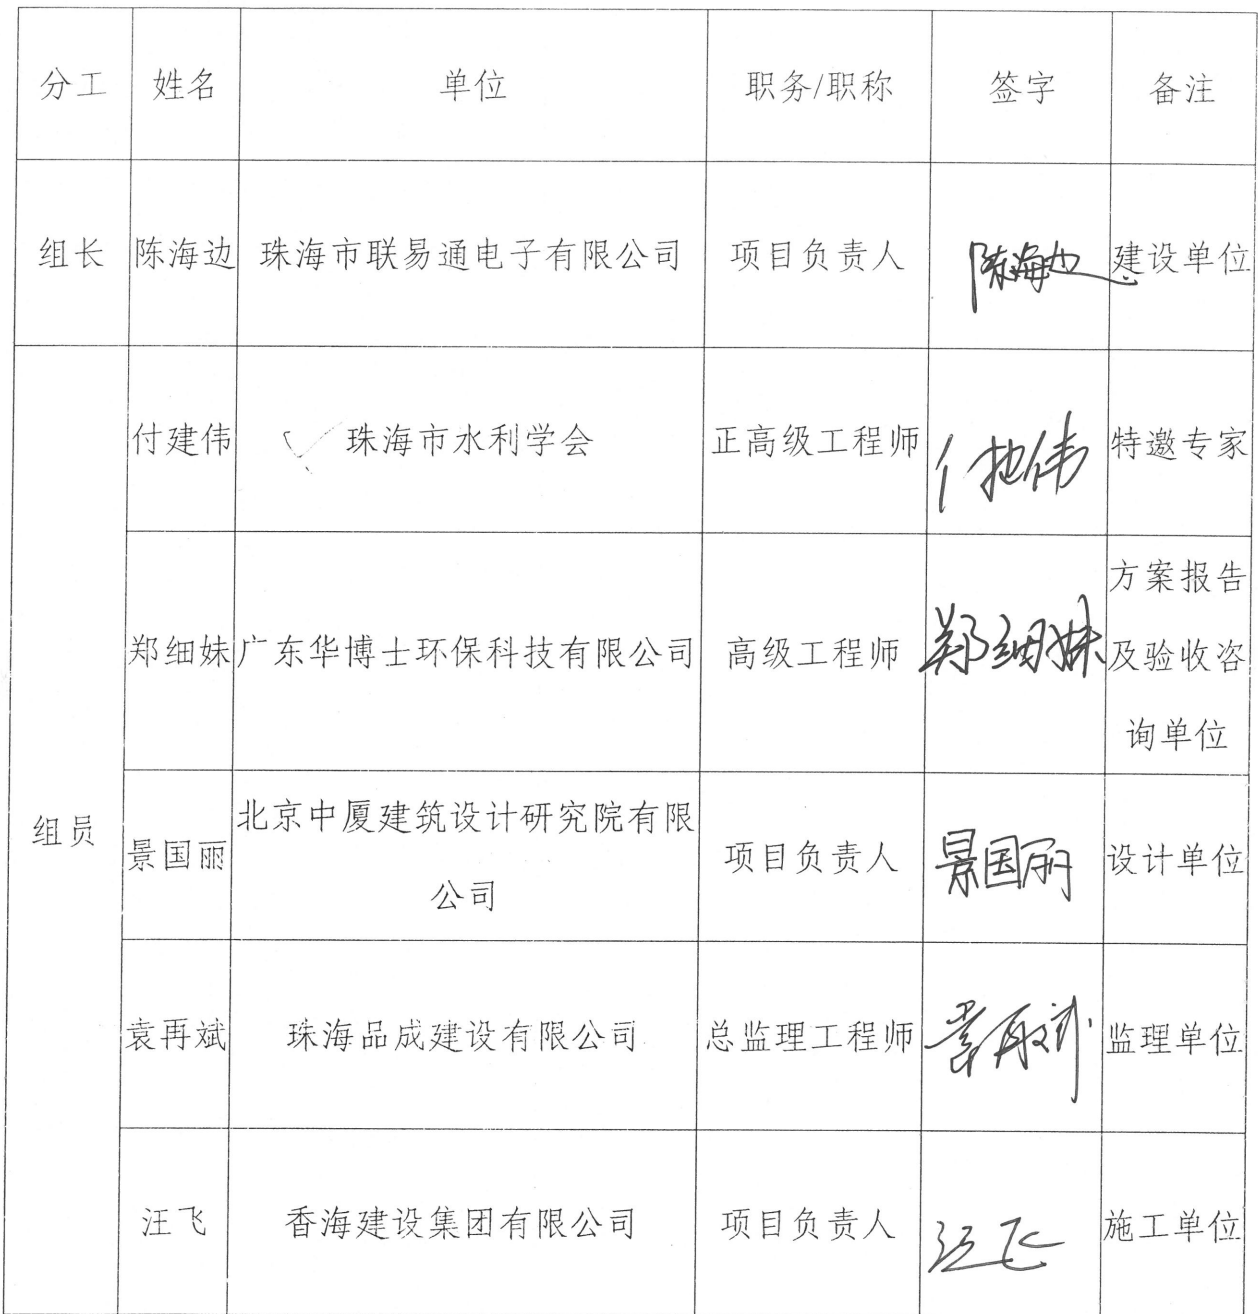 分工 姓名 单位 职务/职称 签字 备注
组长 陈海边 珠海市联易通电子有限公司 项目负责人 陈海边 建设单位
组员
付建伟 珠海市水利学会 正高级工程师 付建伟 特邀专家
郑细妹 广东华博士环保科技有限公司 高级工程师 郑细妹 方案报告
及验收咨
询单位
景国丽 北京中厦建筑设计研究院有限
公司
项目负责人 景国丽 设计单位
袁再斌 珠海品成建设有限公司 总监理工程师 袁再斌 监理单位
汪飞 香海建设集团有限公司 项目负责人 汪飞 施工单位